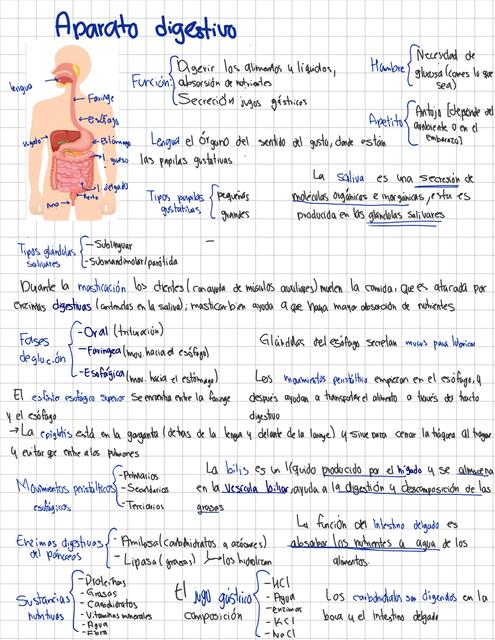 Aparato digestivo
lengua
Faringe
Esófago
Hígado
Estómago
I. grueso
I. delgado
Recto
Ano
Función:
Digerir los alimentos y líquidos,
absorsión de nutrientes
Secreción jugos gástricos
Hambre
Necesidad de
glucosa (comes lo que
sea)
Apetito
Antojo [depende del
ambiente o en el
embarazo]
Lengua el órgano del sentido del gusto, donde están
las papilas gustativas
Tipos papilas
gustatilas
pequeñas
grandes
La saliva es una secresión de
moléculas orgánicas e inorgánicas, esta es
producida en las glándulas salivares
Tipos glándulas
salivares
- Sublingual
- Submandibular/parótida
Durante la masticación los dientes (con ayuda de músculos auxiliares) muelen la comida, que es atacada por
enzimas digestivas (contenidas en la saliva); masticar bien ayuda a que haya mayor absorción de nutrientes
Fases
deglución
- Oral (trituración)
- Faringea (mov. hacia el esófago)
- Esofágica (mov. hacia el estómago)
Glándulas del esófago secretan mucos para lubricar
Los movimientos peristáltico empiezan en el esófago, y
después ayudan a transportar el alimento a través del tracto
digestivo
El esfínter esofágico superior se encuentra entre la faringe
y el esófago
→ La epiglotis está en la garganta (detras de la lengua y delante de la laringe) y sirve para cerrar la tráquea al tragar
y evitar que entre a los pulmones
Movimientos peristálticos
esofágicos
- Primarios
- Secundarios
- Terciarios
La bilis es un líquido producido por el hígado y se almacena
en la vesícula biliar, ayuda a la digestión y descomposición de las
grasas
Enzimas digestivas
del páncreas
- Amilasa (carbohidratos a azúcares)
- Lipasa (grasas) los hidrolizan
La función del intestino delgado es
absorber los nutrientes y agua de los
alimentos.
Sustancias
nutritivas
- Proteínas
- Grasas
- Carbohidratos
- Vitaminas minerales
- Agua
- Fibra
El jugo gástrico
composición
- HCl
- Agua
- enzimas
- KCl
- NaCl
Los carbohidratos son digeridos en la
boca y el intestino delgado